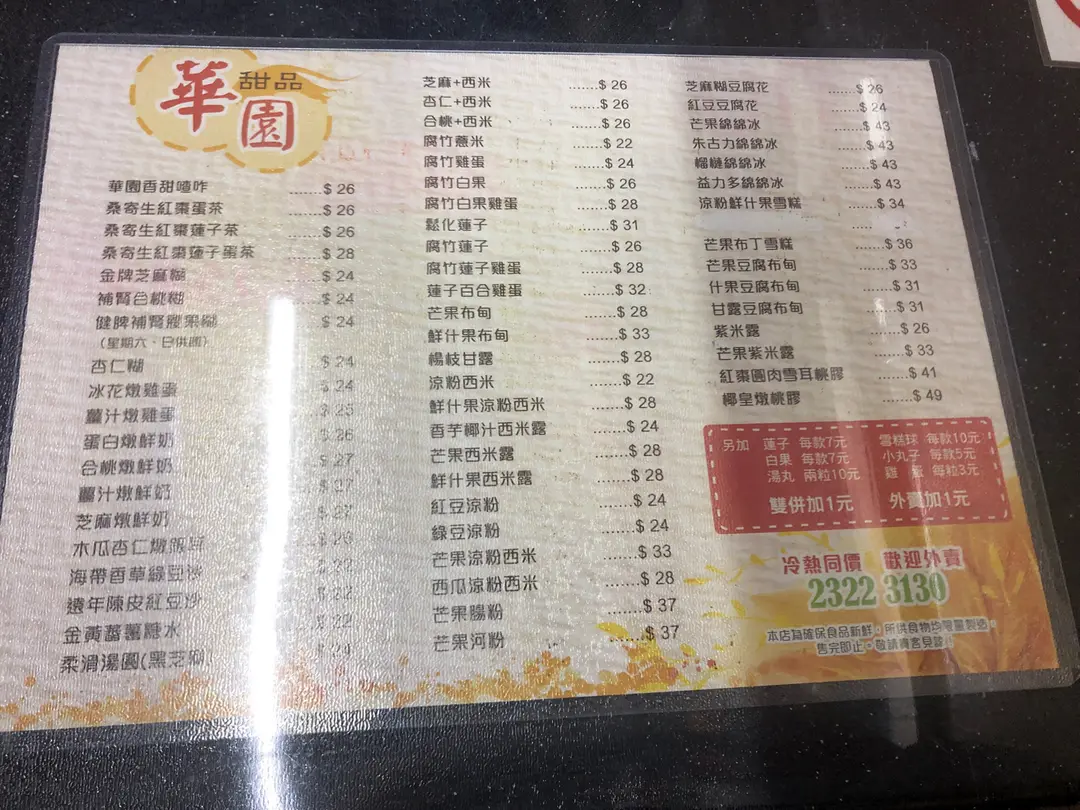 華園
甜品
華園香甜喳咋 ......$ 26
桑寄生紅棗蛋茶 ......$ 26
桑寄生紅棗蓮子茶 ......$ 26
桑寄生紅棗蓮子蛋茶 ......$ 28
金牌芝麻糊 $ 24
補腎合桃糊 $ 24
健脾補腎 $ 24
(星期六、日供應)
杏仁糊 $ 24
冰花燉雞蛋 $ 24
薑汁燉雞蛋
蛋白燉鮮奶 $ 26
合桃燉鮮奶 $ 27
薑汁燉鮮奶
芝麻燉鮮奶
木瓜杏仁燉
海帶香草綠豆沙
遠年陳皮紅豆沙
金黃蕃薯糖水
柔滑湯圓(黑芝麻)
芝麻+西米 ......$ 26
杏仁+西米 ......$ 26
合桃+西米 ......$ 26
腐竹薏米 ......$ 22
腐竹雞蛋 ......$ 24
腐竹白果 ......$ 26
腐竹白果雞蛋 ......$ 28
鬆化蓮子 ......$ 31
腐竹蓮子 ......$ 26
腐竹蓮子雞蛋 ......$ 28
蓮子百合雞蛋 ......$ 32
芒果布甸 ......$ 28
鮮什果布甸 ......$ 33
楊枝甘露 ......$ 28
涼粉西米 ......$ 22
鮮什果涼粉西米 ......$ 28
香芋椰汁西米露 ......$ 24
芒果西米露 ......$ 28
鮮什果西米露 ......$ 28
紅豆涼粉 ......$ 24
綠豆涼粉 ......$ 24
芒果涼粉西米 ......$ 33
西瓜涼粉西米 ......$ 28
芒果腸粉 ......$ 37
芒果河粉 ......$ 37
芝麻糊豆腐花 ......$ 26
紅豆豆腐花 ......$ 24
芒果綿綿冰 ......$ 43
朱古力綿綿冰 ......$ 43
榴槤綿綿冰 ......$ 43
益力多綿綿冰 ......$ 43
涼粉鮮什果雪糕 ......$ 34
芒果布丁雪糕 ......$ 36
芒果豆腐布甸 ......$ 33
什果豆腐布甸 ......$ 31
甘露豆腐布甸 ......$ 31
紫米露 ......$ 26
芒果紫米露 ......$ 33
紅棗圓肉雪耳桃膠 ......$ 41
椰皇燉桃膠 ......$ 49
另加 蓮子 每款7元 雪糕球 每款10元
白果 每款7元 小丸子 每款5元
湯丸 兩粒10元 雞蛋 每粒3元
雙併加1元 外賣加1元
冷熱同價 歡迎外賣
2322 3130
本店為確保食品新鮮，所供食物均限量製造，
售完即止，敬請貴客見諒